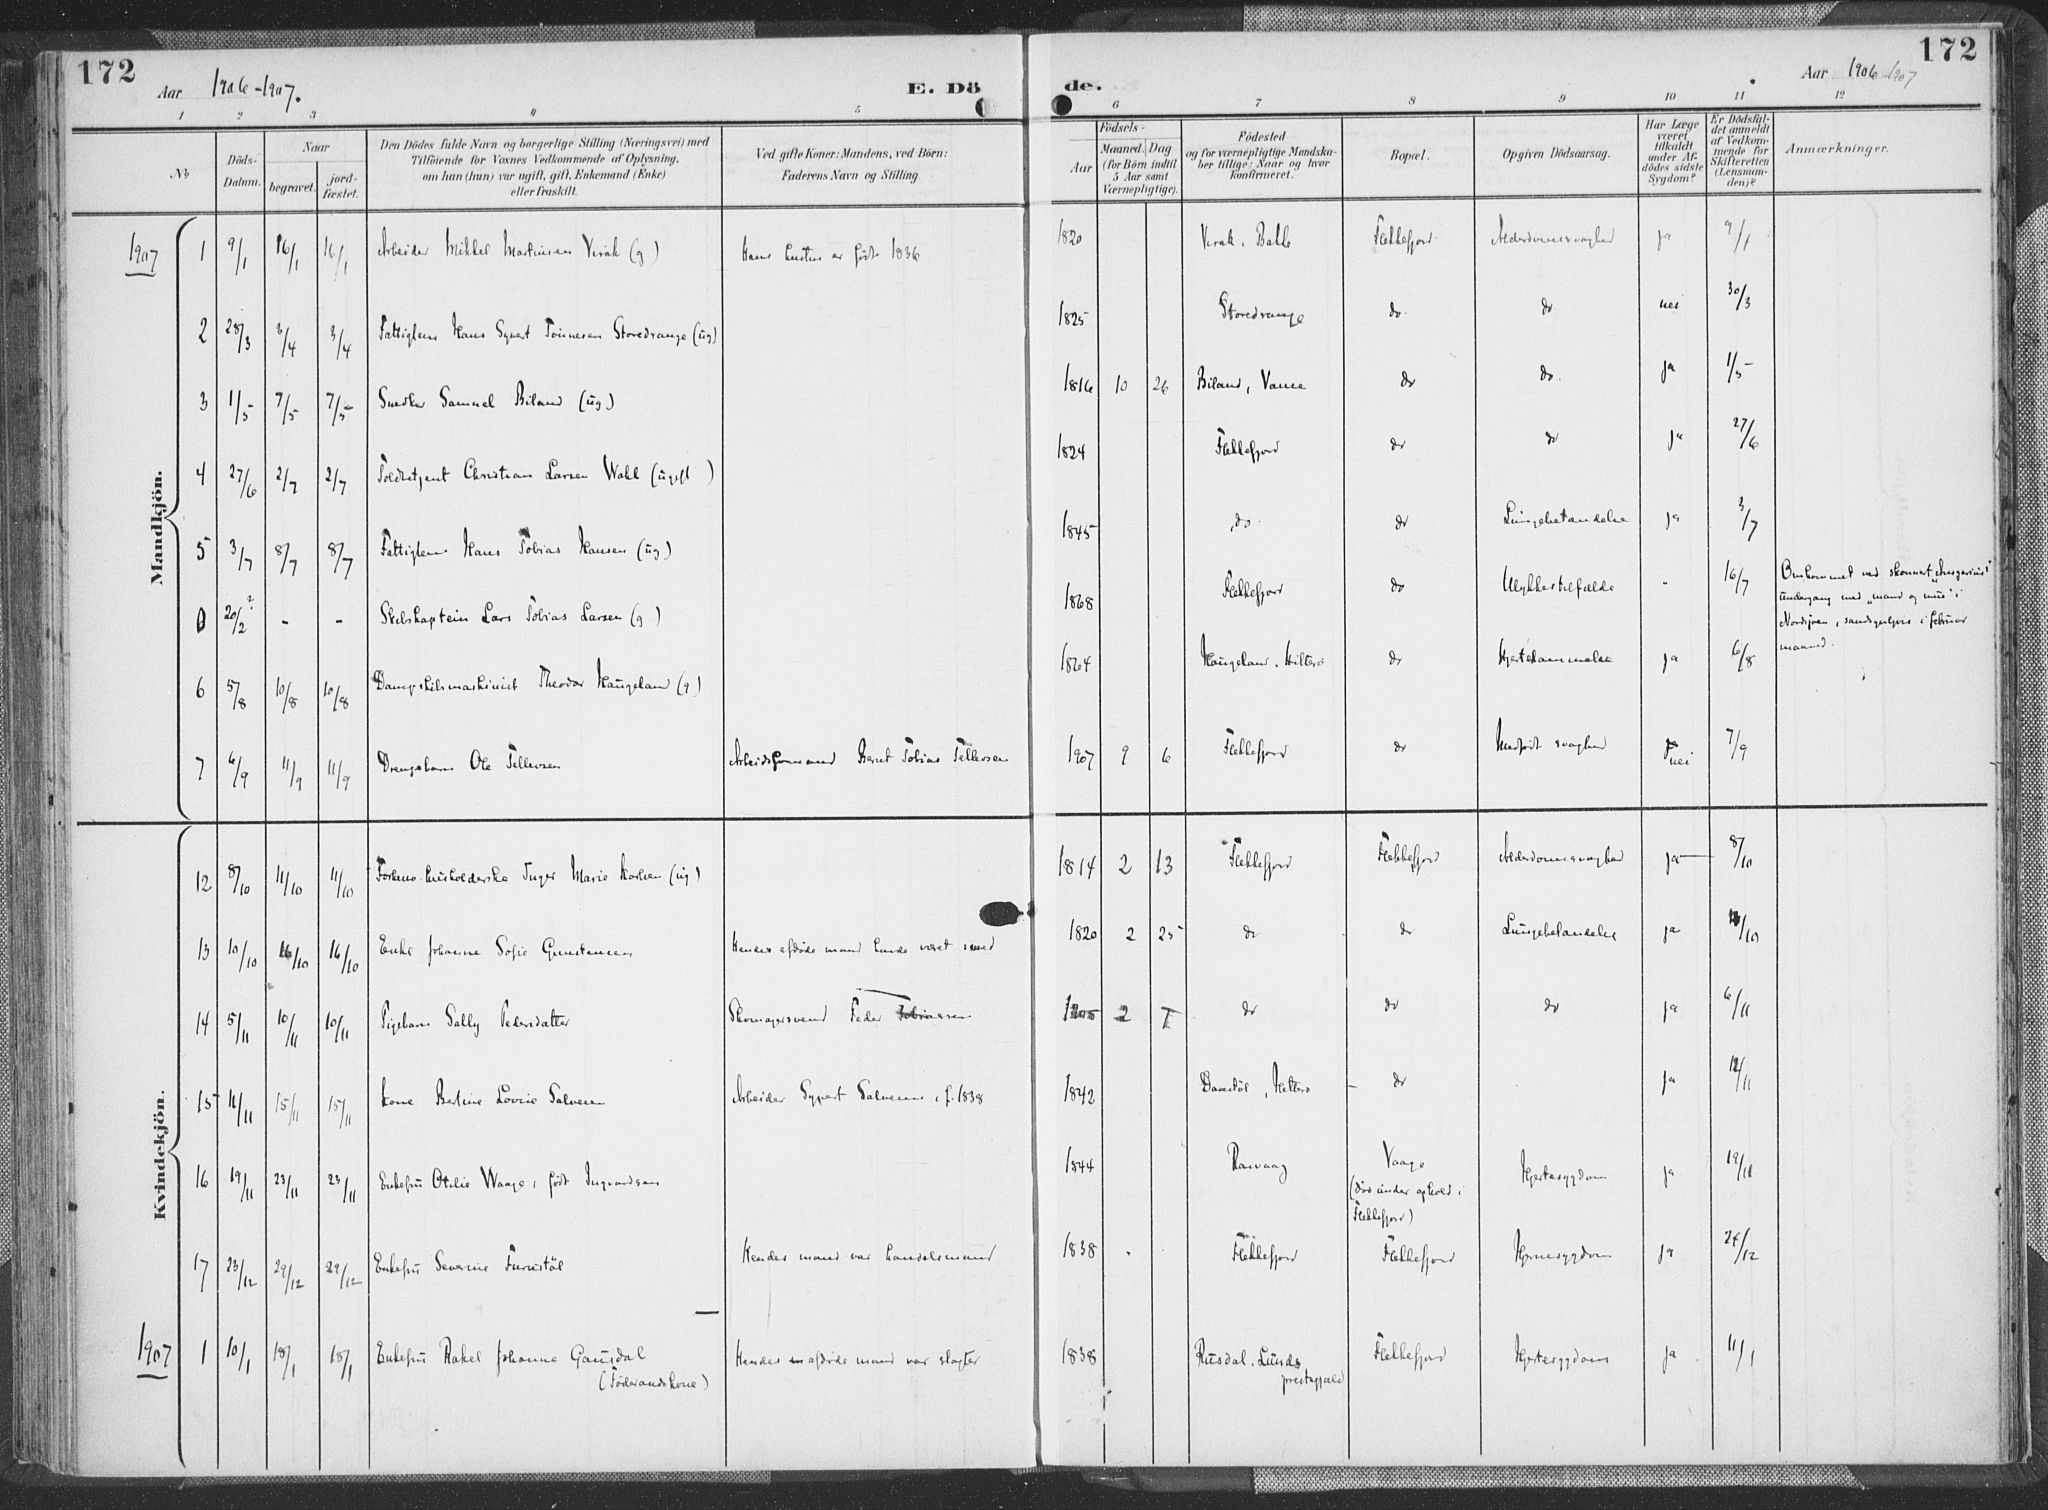 172
Aar 1906-1907.
E. Dö
de.
Aar 1906-1907
172
1 2 3 4 5 6 7 8 9 10 11 12
No
Döds-Datum.
Naar
begravet.
jordfæstet.
Den Dödes fulde Navn og borgerlige Stilling (Næringsvei) med
Tilföiende for Voxnes Vedkommende af Oplysning,
om han (hun) var ugift, gift, Enkemand (Enke)
eller fraskilt.
Ved gifte Koner: Mandens, ved Börn:
Faderens Navn og Stilling.
Födsels-
Aar
Maaned. Dag
(for Börn indtil
5 Aar samt
Værnepligtige).
Födested
og for værnepligtige Mandskaber tillige: Naar og hvor
konfirmeret.
Bopæl.
Opgiven Dödsaarsag.
Har Læge
været
tilkaldt
under Afdödes sidste
Sygdom?
Er Dödsfaldet anmeldt
af Vedkommende for
Skifteretten
(Lensmanden)?
Anmærkninger.
Mandkjön.
1907 1 9/1 16/1 16/1 Arbeider Mikkel Martinsen Virak (g) Hans hustru er født 1836 1820 Virak, Bakke Flekkefjord Alderdomssvaghed ja 9/1
2 28/3 3/4 3/4 Fattiglem Hans Syvert Tønnesen Storedrange (ug) 1825 Storedrange do do nei 30/3
3 1/5 7/5 7/5 Snedker Samuel Biland (ug) 1816 10 26 Biland, Vanse do do. ja 1/5
4 27/6 2/7 2/7 Toldbetjent Christian Larsen Wahl (ugift) 1824 Flekkefjord do do ja 27/6
5 3/7 8/7 8/7 Fattiglem Hans Tobias Hansen (ug) 1845 do do Lungebetændelse ja 3/7
0 20/2? - - Skibskaptein Lars Tobias Larsen (g) 1868 Flekkefjord do Ulykkestilfælde - 16/7 Omkommet ved skonnert "Ansgarius"
undergang med "mand og mus" i
Nordsjøen, sandsynligvis i februar
maaned.
6 5/8 10/8 10/8 Dampskibsmaskinist Theodor Haugeland (g) 1864 Haugeland, Hitterø do Hjertelammelse ja 6/8
7 6/9 11/9 11/9 Drengebarn Ole Tellevsen Arbeidsformand Bernt Tobias Tellevsen 1907 9 6 Flekkefjord do Medfødt svaghed nei 7/9
Kvindekjön.
12 8/10 11/10 11/10 Forhenv. husholderske Inger Marie Karlsen (ug) 1814 2 13 Flekkefjord Flekkefjord Alderdomssvaghed ja 8/10
13 10/10 16/10 16/10 Enke Johanne Sofie Gunstensen Hendes afdøde mand havde været smed 1820 2 25 do do Lungebetændelse ja /10
14 5/11 10/11 10/11 Pigebarn Sally Pedersdatter Skomagersvend Peder Tobiassen 2 do do do ja 6/11
15 11/11 15/11 15/11 Kone Bertine Lovise Salvesen Arbeider Syvert Salvesen, f. 1838 1842 Daastøl, Hitterø - do ja 12/11
16 19/11 23/11 23/11 Enkefru Otilie Waage, født Ingvardsen 1844 Rasvaag Vaage
(død under ophold i
Flekkefjord) Hjertesygdom ja 19/11
17 23/12 29/12 29/12 Enkefru Severine Furustøl Hendes mand var handelsmand 1838 - - Flekkefjord Flekkefjord Hjernesygdom ja 24/12
1907 1 10/1 18/1 18/1 Enkefru Rakel Johanne Gausdal
(Føderaadskone) Hendes afdøde mand var slagter 1838 Rusdal, Lunds
prestegjæld Flekkefjord Hjertesygdom ja 11/1